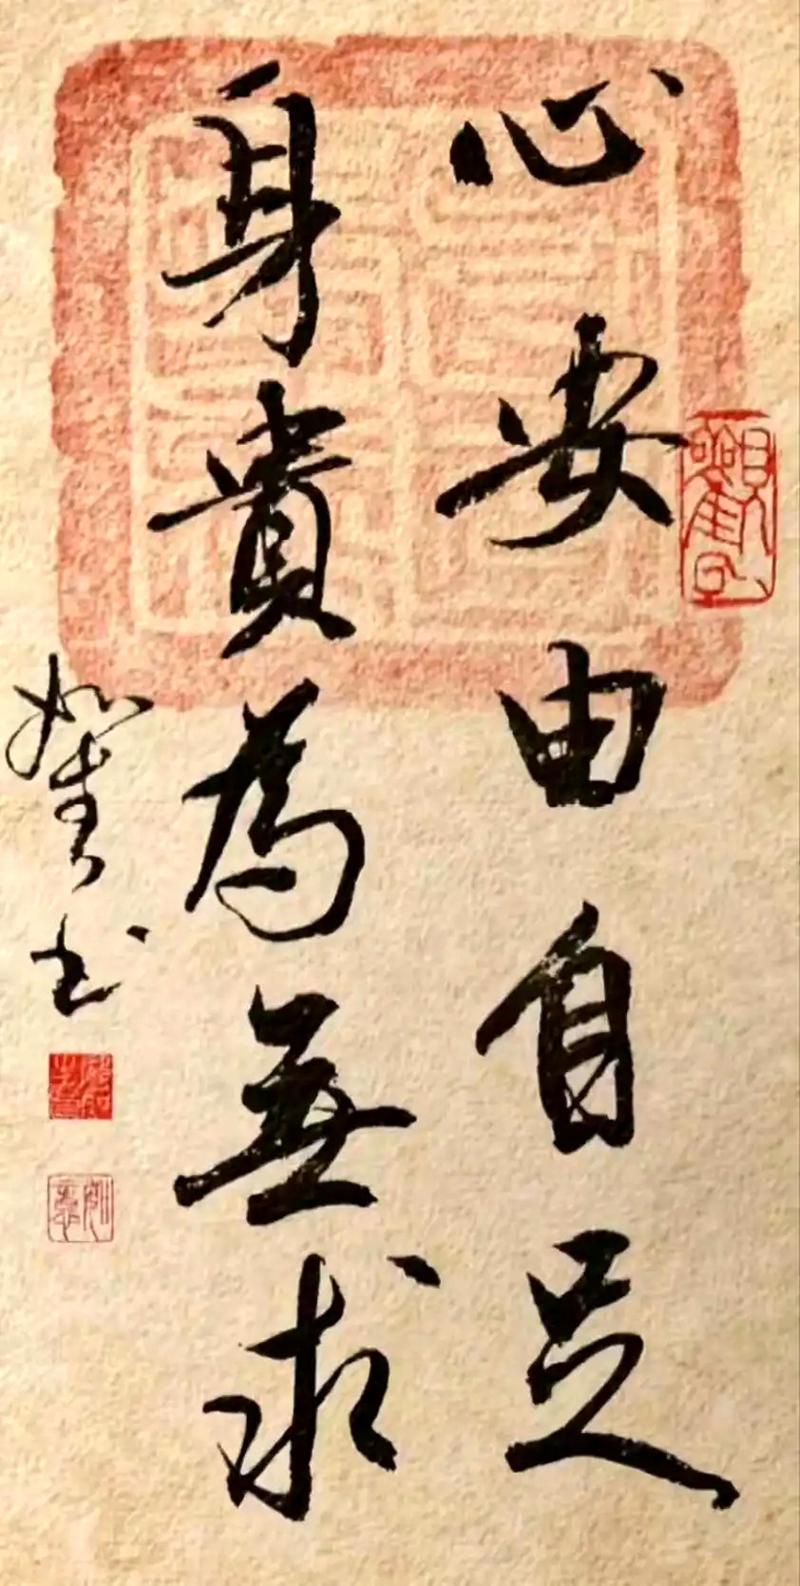 心安由自足
身貴為無求
書